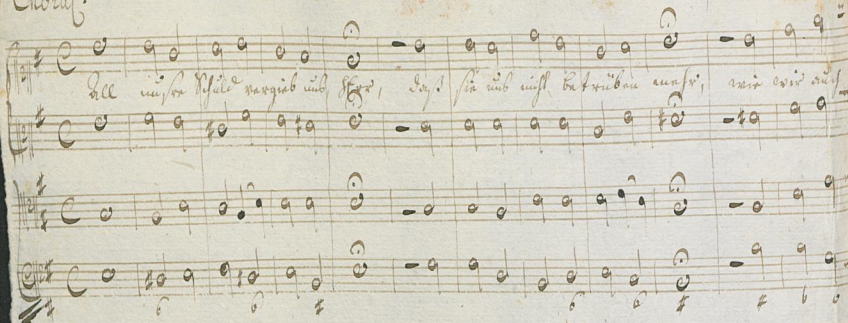 Choral.
All unsre Schuld vergieb uns Herr, daß sie uns nicht betrüben mehr, wie wir auch
6 6 # 6 6 # # 6 6